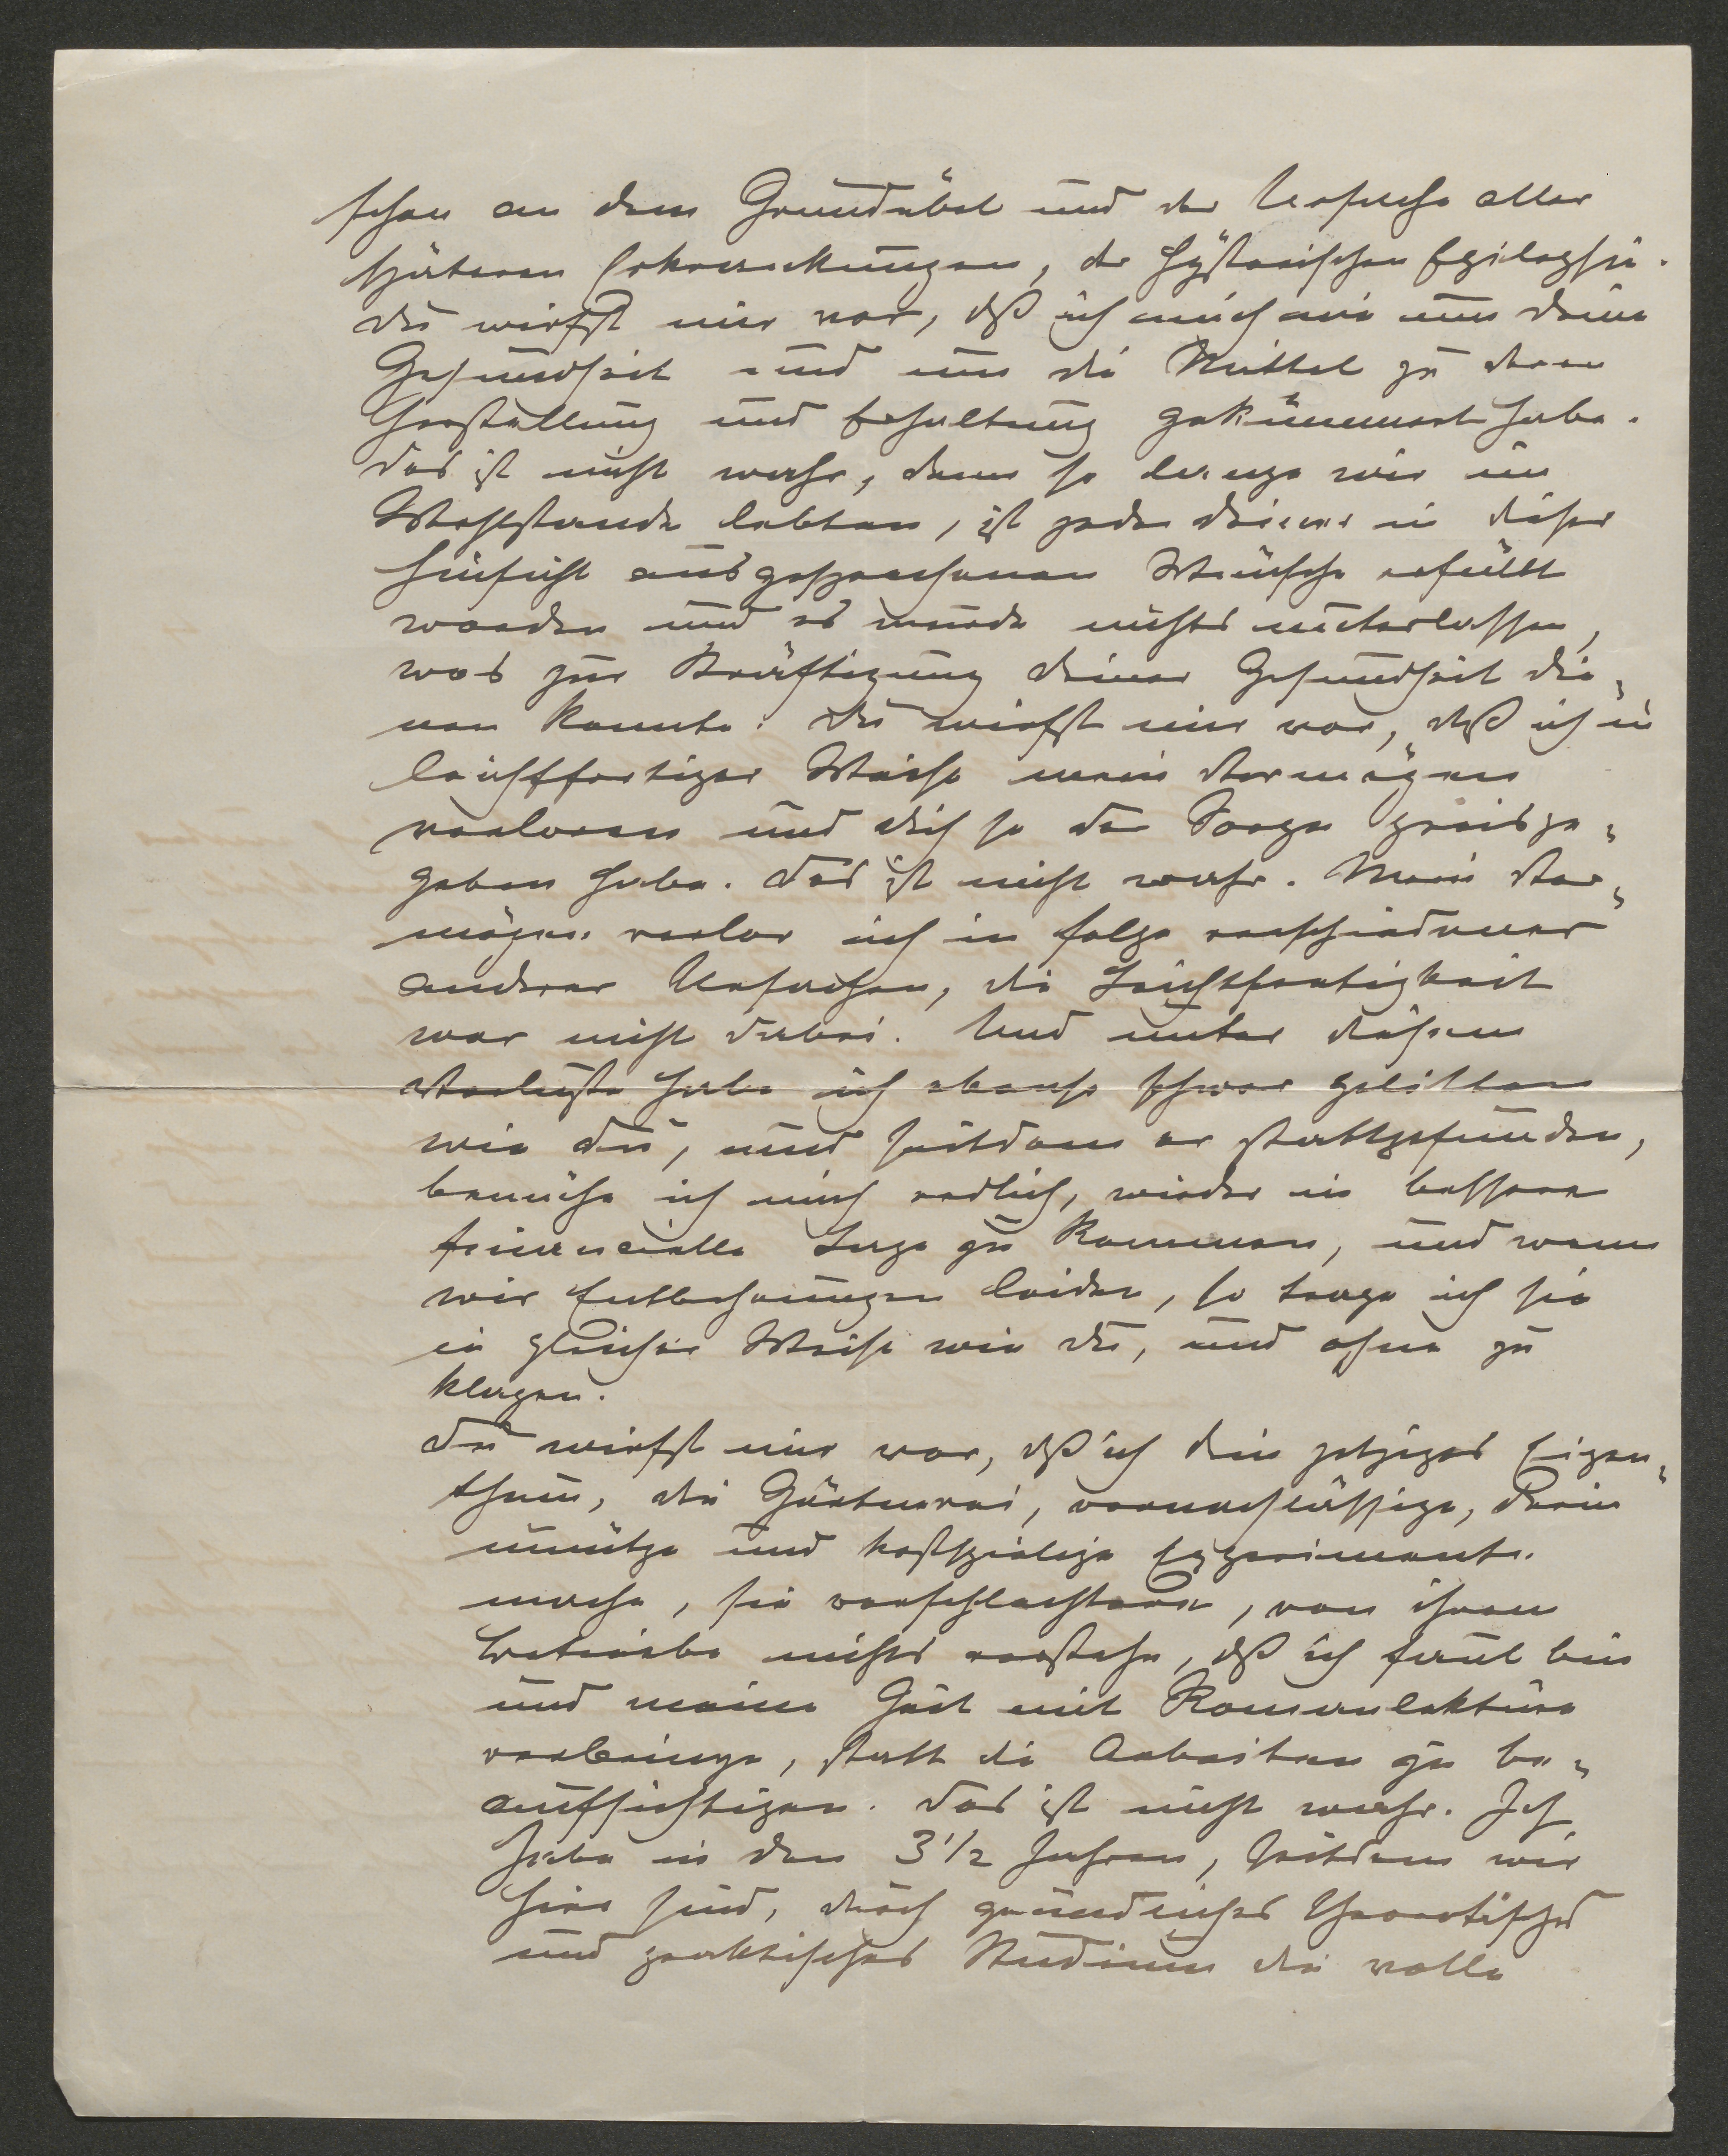 schon an dem Grundübel und der Ursache aller
späteren Erkrankungen, der hysterischen Epilepsie.
Du wirfst mir vor, daß ich mich nie um deine
Gesundheit und um die Mittel zu deren
Herstellung und Erhaltung gekümmert habe.
Das ist nicht wahr, denn so lange wir im
Wohlstande lebten, ist jeder deiner in dieser
Hinsicht ausgesprochenen Wünsche erfüllt
worden und es wurde nichts unterlassen,
was zur Kräftigung deiner Gesundheit die-
nen konnte. Du wirfst mir vor, daß ich in
leichtfertiger Weise mein Vermögen
verloren und dich so den Sorgen preisge-
geben habe. Das ist nicht wahr. Mein Ver-
mögen verlor ich in folge verschiedener
anderer Ursachen, die Leichtfertigkeit
war nicht dabei. Und unter diesem
Verluste habe ich ebenso schwer gelitten
wie du, und seitdem er stattgefunden,
bemühe ich mich redlich, wieder in bessere
financielle Lage zu kommen, und wenn
wir Entbehrungen leiden, so trage ich sie
in gleicher Weise wie du, und ohne zu
klagen.
Du wirfst mir vor, daß ich dein jetziges Eigen-
thum, die Gärtnerei, vernachlässige, darin
unnütze und kostspielige Experimente
mache, sie verschlechtere, von ihrem
Betriebe nichts verstehe, daß ich faul bin
und meine Zeit mit Romanlektüre
verbringe, statt die Arbeiten zu be-
aufsichtigen. Das ist nicht wahr. Ich
habe in den 3 1/2 Jahren, seitdem wir
hier sind, durch gründliches theoretisches
und praktisches Studium die volle